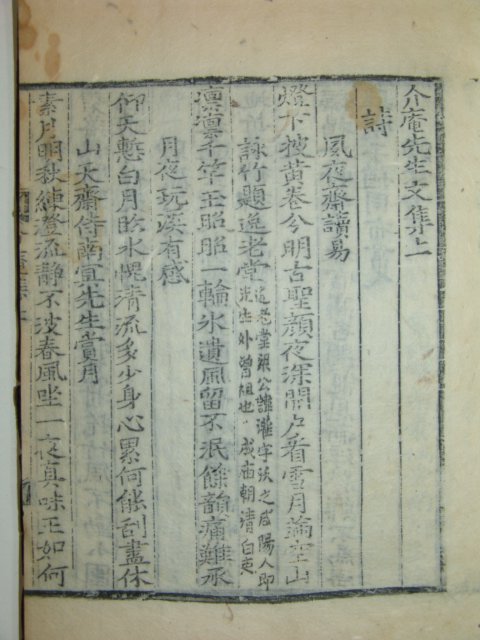 介庵先生文集上
詩
風夜齋讀易
燈下披黃卷分明古聖顏夜深開戶看雪月滿空山
詠竹題逸老堂
逸老堂梁公諱灌字沃之咸陽人即
先生外曾祖也 成廟朝清白吏
凛凛千竿玉昭昭一輪氷遺風留不泯餘韻痛難承
月夜玩溪有感
仰天慙白月臨水愧清流多少身心累何能刮盡休
山天齋侍南冥先生賞月
素月明秋練澄流靜不波春風坐一夜真味正如何